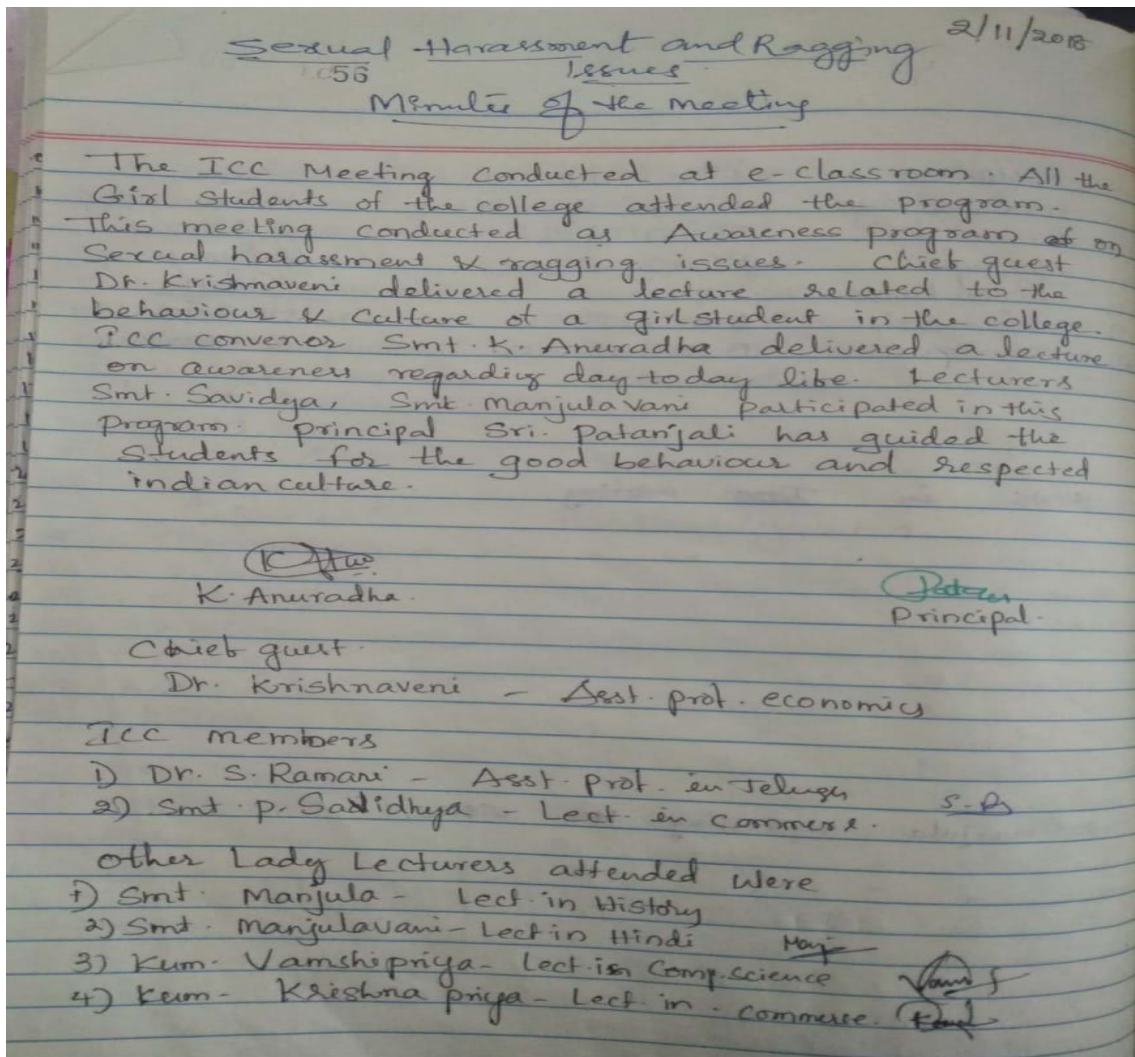 2/11/2018
Sexual Harassment and Ragging
56 Issues
Minutes of the meeting
The ICC Meeting conducted at e-classroom. All the
Girl Students of the college attended the program.
This meeting conducted as Awareness program on
Sexual harassment & ragging issues. Chief guest
Dr. Krishnaveni delivered a lecture related to the
behaviour & Culture of a girl student in the college.
ICC convenor Smt. K. Anuradha delivered a lecture
on awareness regarding day today life. Lecturers
Smt. Savidya, Smt. Manjula vani participated in this
Program. principal Sri. Patanjali has guided the
Students for the good behaviour and respected
indian culture.
K. Anuradha.
Principal.
Chief guest.
Dr. Krishnaveni - Asst. prof. economics
ICC members
1) Dr. S. Ramani - Asst. prof. in Telugu
2) Smt. P. - Lect. in Commerce.
other Lady Lecturers attended were
1) Smt. Manjula - Lect. in History
2) Smt. Manjulavani - Lect in Hindi
3) Kum. Vamshipriya - Lect. in Comp. science
4) Kum - Krishna priya - Lect. in . commerce.